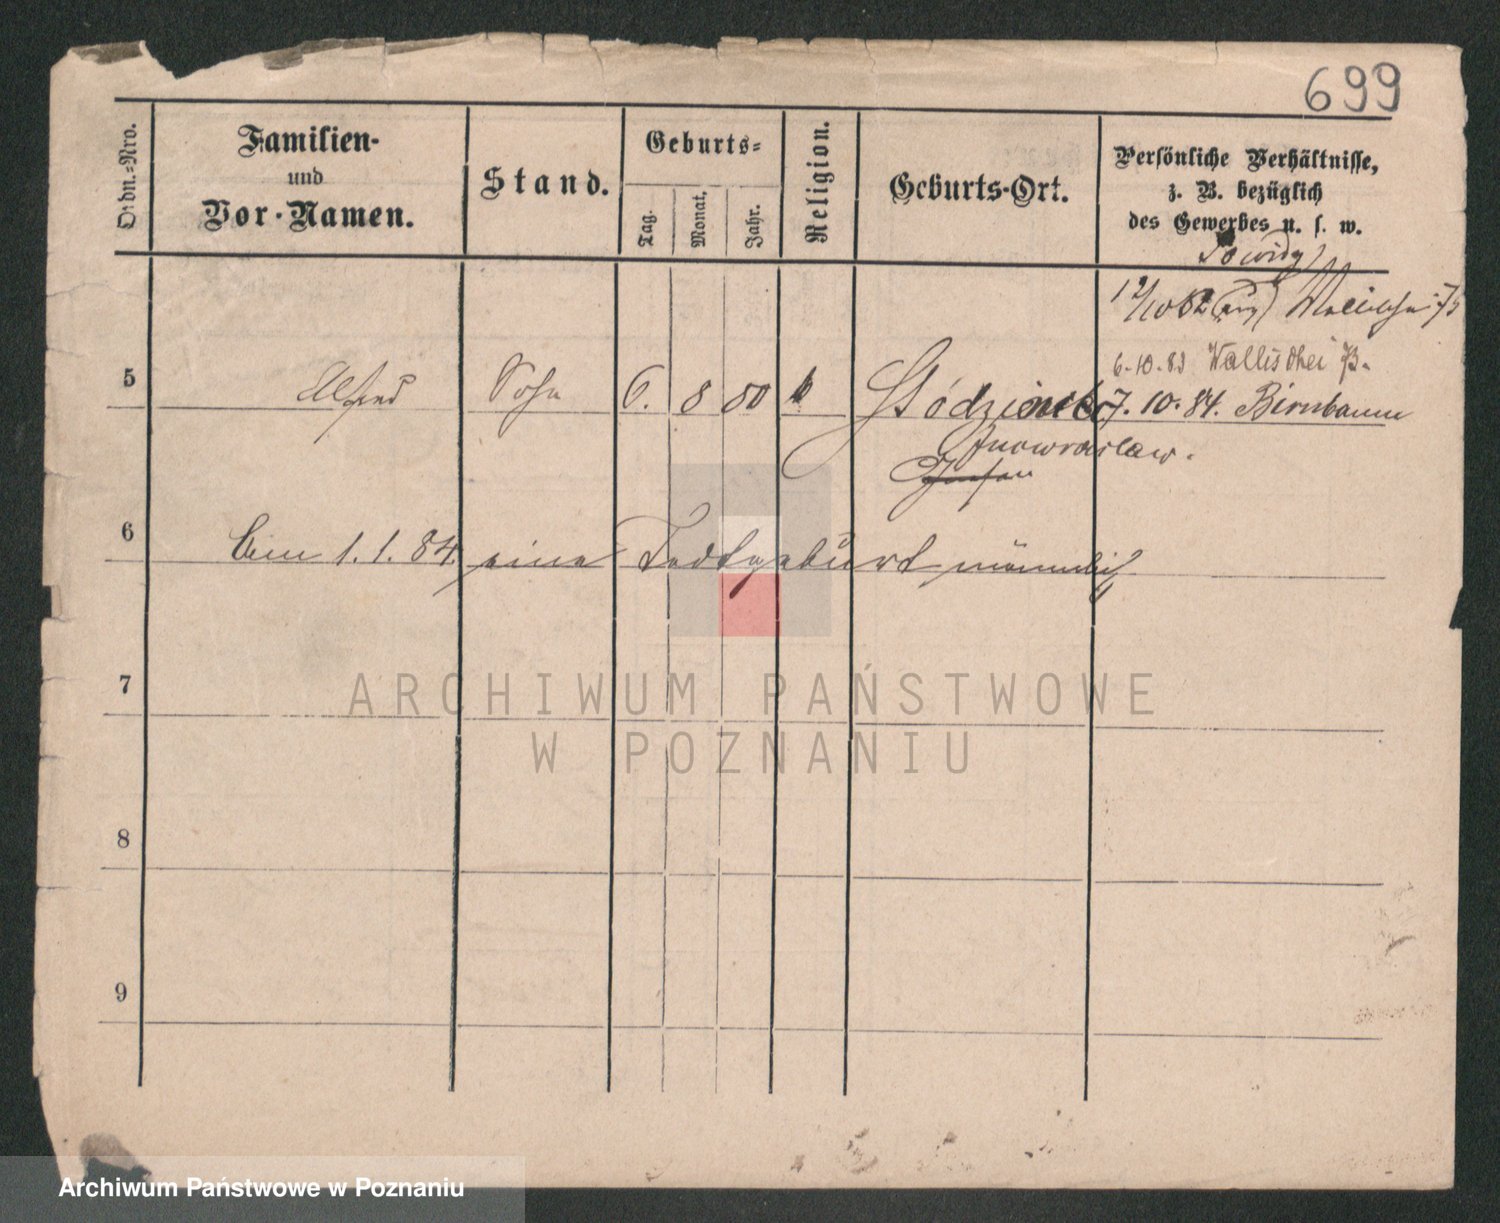 699
Ordn.-Nro.
Familien-
und
Vor-Namen.
Stand.
Geburts-
Tag.
Monat.
Jahr.
Religion.
Geburts-Ort.
Persönliche Verhältnisse,
z. B. bezüglich
des Gewerbes u. s. w.
6.10.83 Wallischei 73.
5 Alfred Sohn 6. 8 80 k 7.10.84. Birnbaum
Inowraclaw.
6 Am 1.1.84. eine Todtgeburt männlich
7
8
9
ARCHIWUM PAŃSTWOWE
W POZNANIU
Archiwum Państwowe w Poznaniu